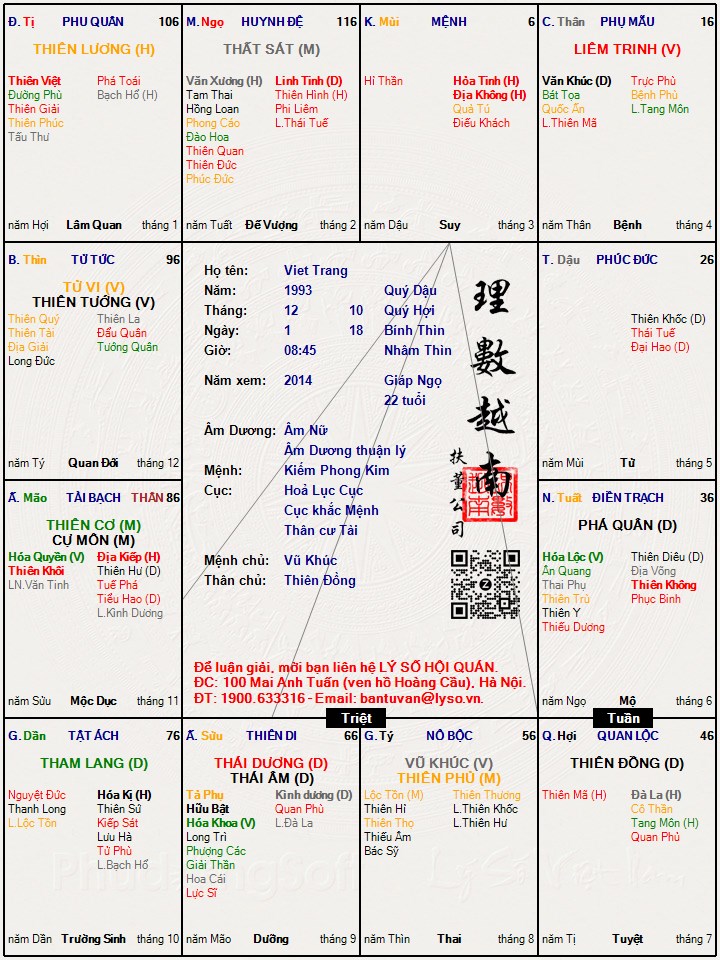 Đ. Tị PHU QUÂN 106
THIÊN LƯƠNG (H)
Thiên Việt Phá Toái
Đường Phù Bạch Hổ (H)
Thiên Giải
Thiên Phúc
Tấu Thư
năm Hợi Lâm Quan tháng 1
M. Ngọ HUYNH ĐỆ 116
THẤT SÁT (M)
Văn Xương (H) Linh Tinh (D)
Tam Thai Thiên Hình (H)
Hồng Loan Phi Liêm
Phong Cáo L.Thái Tuế
Đào Hoa
Thiên Quan
Thiên Đức
Phúc Đức
năm Tuất Đế Vượng tháng 2
K. Mùi MỆNH 6
Hỉ Thần Hỏa Tinh (H)
Địa Không (H)
Quả Tú
Điếu Khách
năm Dậu Suy tháng 3
C. Thân PHỤ MẪU 16
LIÊM TRINH (V)
Văn Khúc (D) Trực Phù
Bát Tọa Bệnh Phù
Quốc Ấn L.Tang Môn
L.Thiên Mã
năm Thân Bệnh tháng 4
B. Thìn TỬ TỨC 96
TỬ VI (V)
THIÊN TƯỚNG (V)
Thiên Quý Thiên La
Thiên Tài Đẩu Quân
Địa Giải Tướng Quân
Long Đức
năm Tý Quan Đới tháng 12
Họ tên: Viet Trang
Năm: 1993 Quý Dậu
Tháng: 12 10 Quý Hợi
Ngày: 1 18 Bính Thìn
Giờ: 08:45 Nhâm Thìn
Năm xem: 2014 Giáp Ngọ
22 tuổi
Âm Dương: Âm Nữ
Âm Dương thuận lý
Mệnh: Kiếm Phong Kim
Cục: Hoả Lục Cục
Cục khắc Mệnh
Thân cư Tài
Mệnh chủ: Vũ Khúc
Thân chủ: Thiên Đồng
理數越南
扶董公司
Để luận giải, mời bạn liên hệ LÝ SỐ HỘI QUÁN.
ĐC: 100 Mai Anh Tuấn (ven hồ Hoàng Cầu), Hà Nội.
ĐT: 1900.633316 - Email: bantuvan@lyso.vn.
T. Dậu PHÚC ĐỨC 26
Thiên Khốc (D)
Thái Tuế
Đại Hao (D)
năm Mùi Tử tháng 5
Ấ. Mão TÀI BẠCH THÂN 86
THIÊN CƠ (M)
CỰ MÔN (M)
Hóa Quyền (V) Địa Kiếp (H)
Thiên Khôi Thiên Hư (D)
LN.Văn Tinh Tuế Phá
Tiểu Hao (D)
L.Kình Dương
năm Sửu Mộc Dục tháng 11
N. Tuất ĐIỀN TRẠCH 36
PHÁ QUÂN (D)
Hóa Lộc (V) Thiên Diêu (D)
Ân Quang Địa Võng
Thai Phụ Thiên Không
Thiên Trù Phục Binh
Thiên Y
Thiếu Dương
năm Ngọ Mộ tháng 6
Triệt
Tuần
G. Dần TẬT ÁCH 76
THAM LANG (D)
Nguyệt Đức Hóa Kị (H)
Thanh Long Thiên Sứ
L.Lộc Tồn Kiếp Sát
Lưu Hà
Tử Phù
L.Bạch Hổ
năm Dần Trường Sinh tháng 10
Ấ. Sửu THIÊN DI 66
THÁI DƯƠNG (D)
THÁI ÂM (D)
Tả Phụ Kình dương (D)
Hữu Bật Quan Phù
Hóa Khoa (V) L.Đà La
Long Trì
Phượng Các
Giải Thần
Hoa Cái
Lực Sĩ
năm Mão Dưỡng tháng 9
G. Tý NÔ BỘC 56
VŨ KHÚC (V)
THIÊN PHỦ (M)
Lộc Tồn (M) Thiên Thương
Thiên Hỉ L.Thiên Khốc
Thiên Thọ L.Thiên Hư
Thiếu Âm
Bác Sỹ
năm Thìn Thai tháng 8
Q. Hợi QUAN LỘC 46
THIÊN ĐỒNG (D)
Thiên Mã (H) Đà La (H)
Cô Thần
Tang Môn (H)
Quan Phủ
năm Tị Tuyệt tháng 7